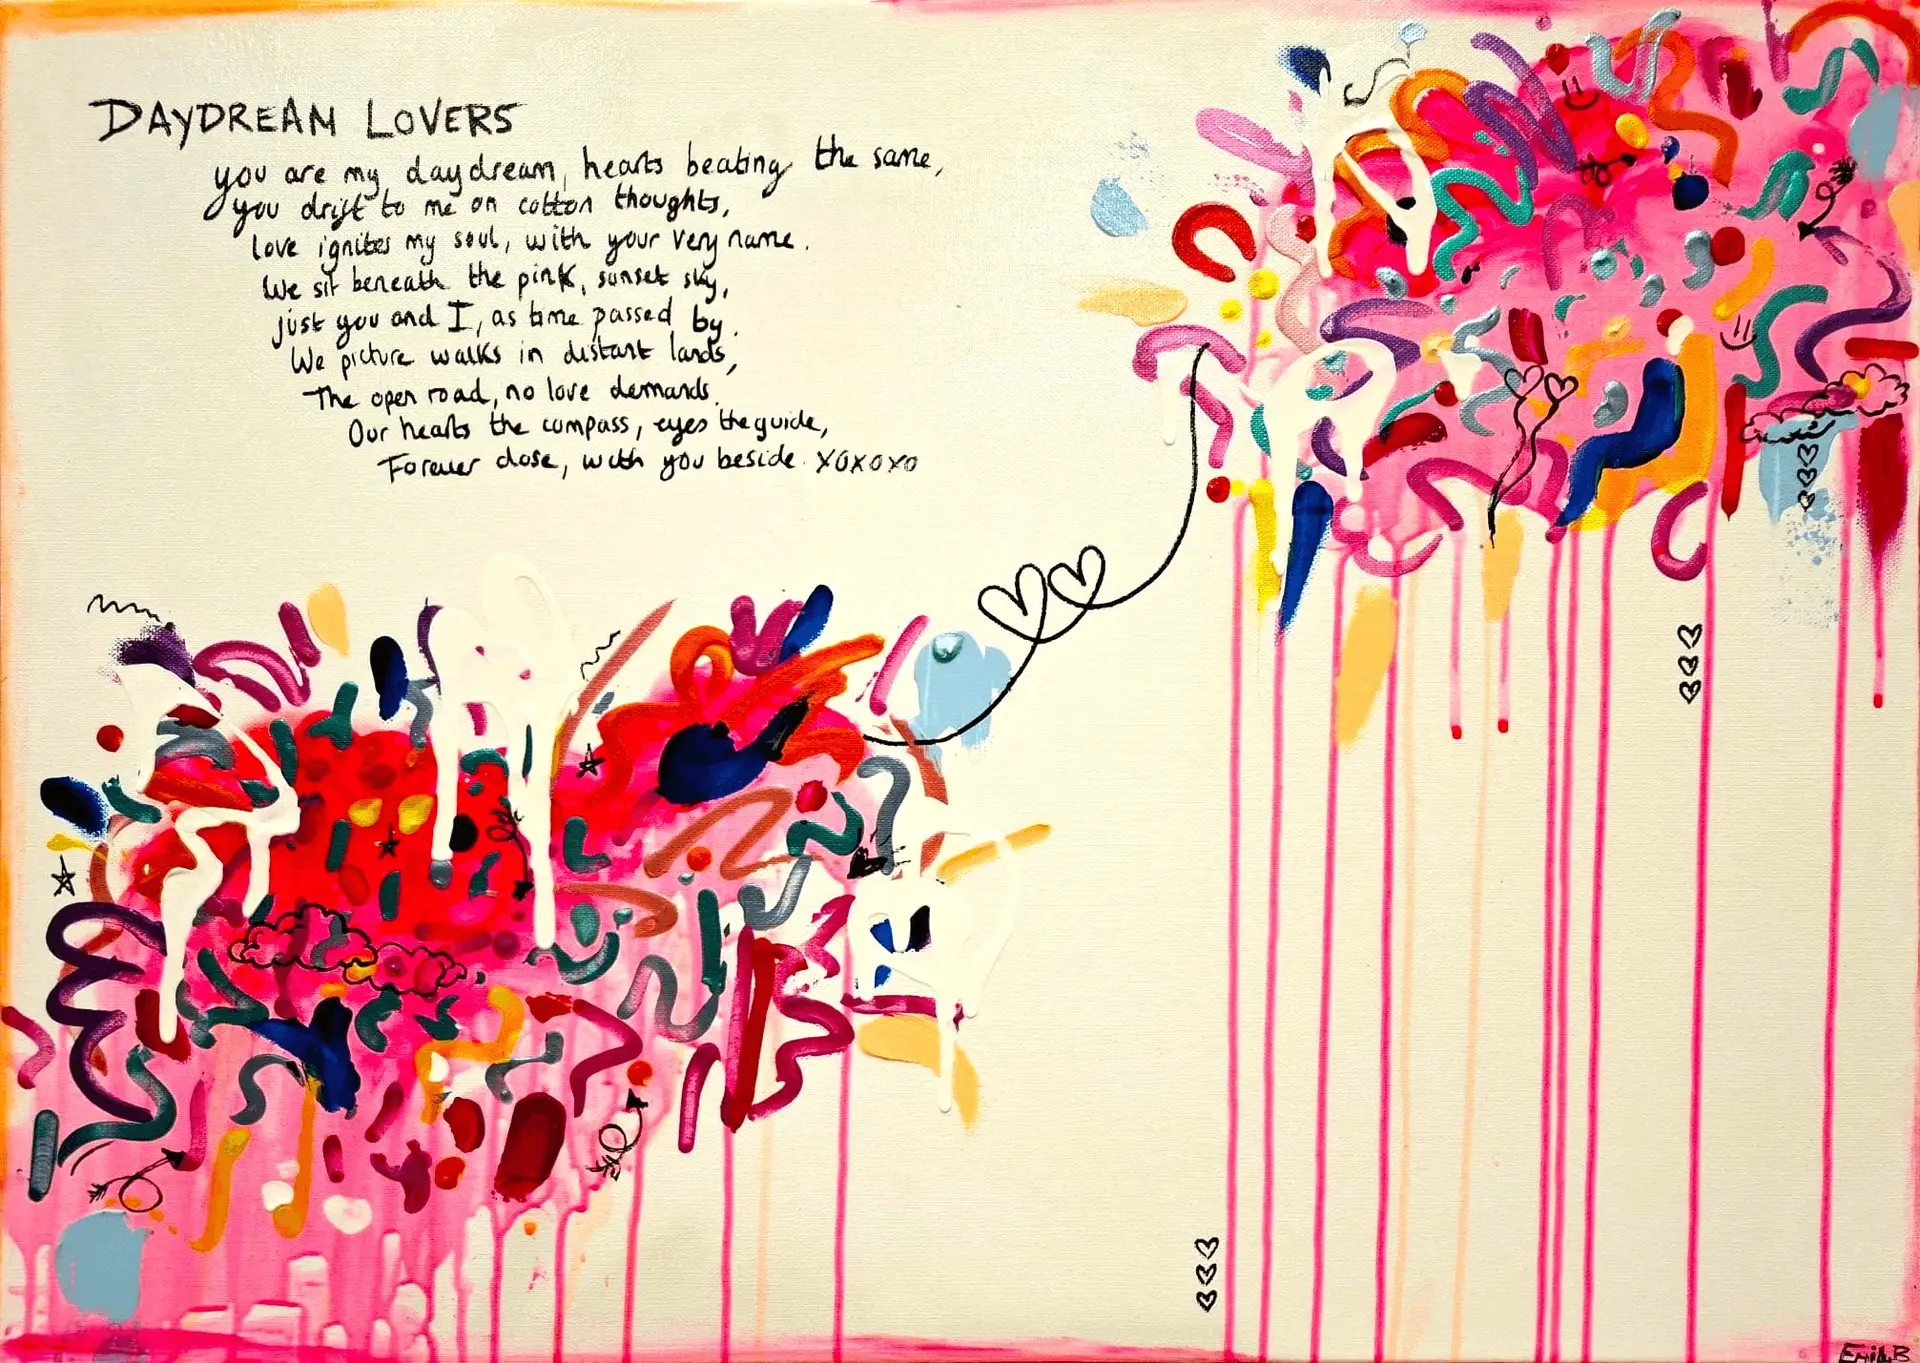 DAYDREAM LOVERS
you are my daydream, hearts beating the same,
you drift to me on cotton thoughts,
love ignites my soul, with your very name.
We sit beneath the pink, sunset sky,
just you and I, as time passed by.
We picture walks in distant lands,
The open road, no love demands.
Our hearts the compass, eyes the guide,
Forever close, with you beside. XOXOXO
Emily.B